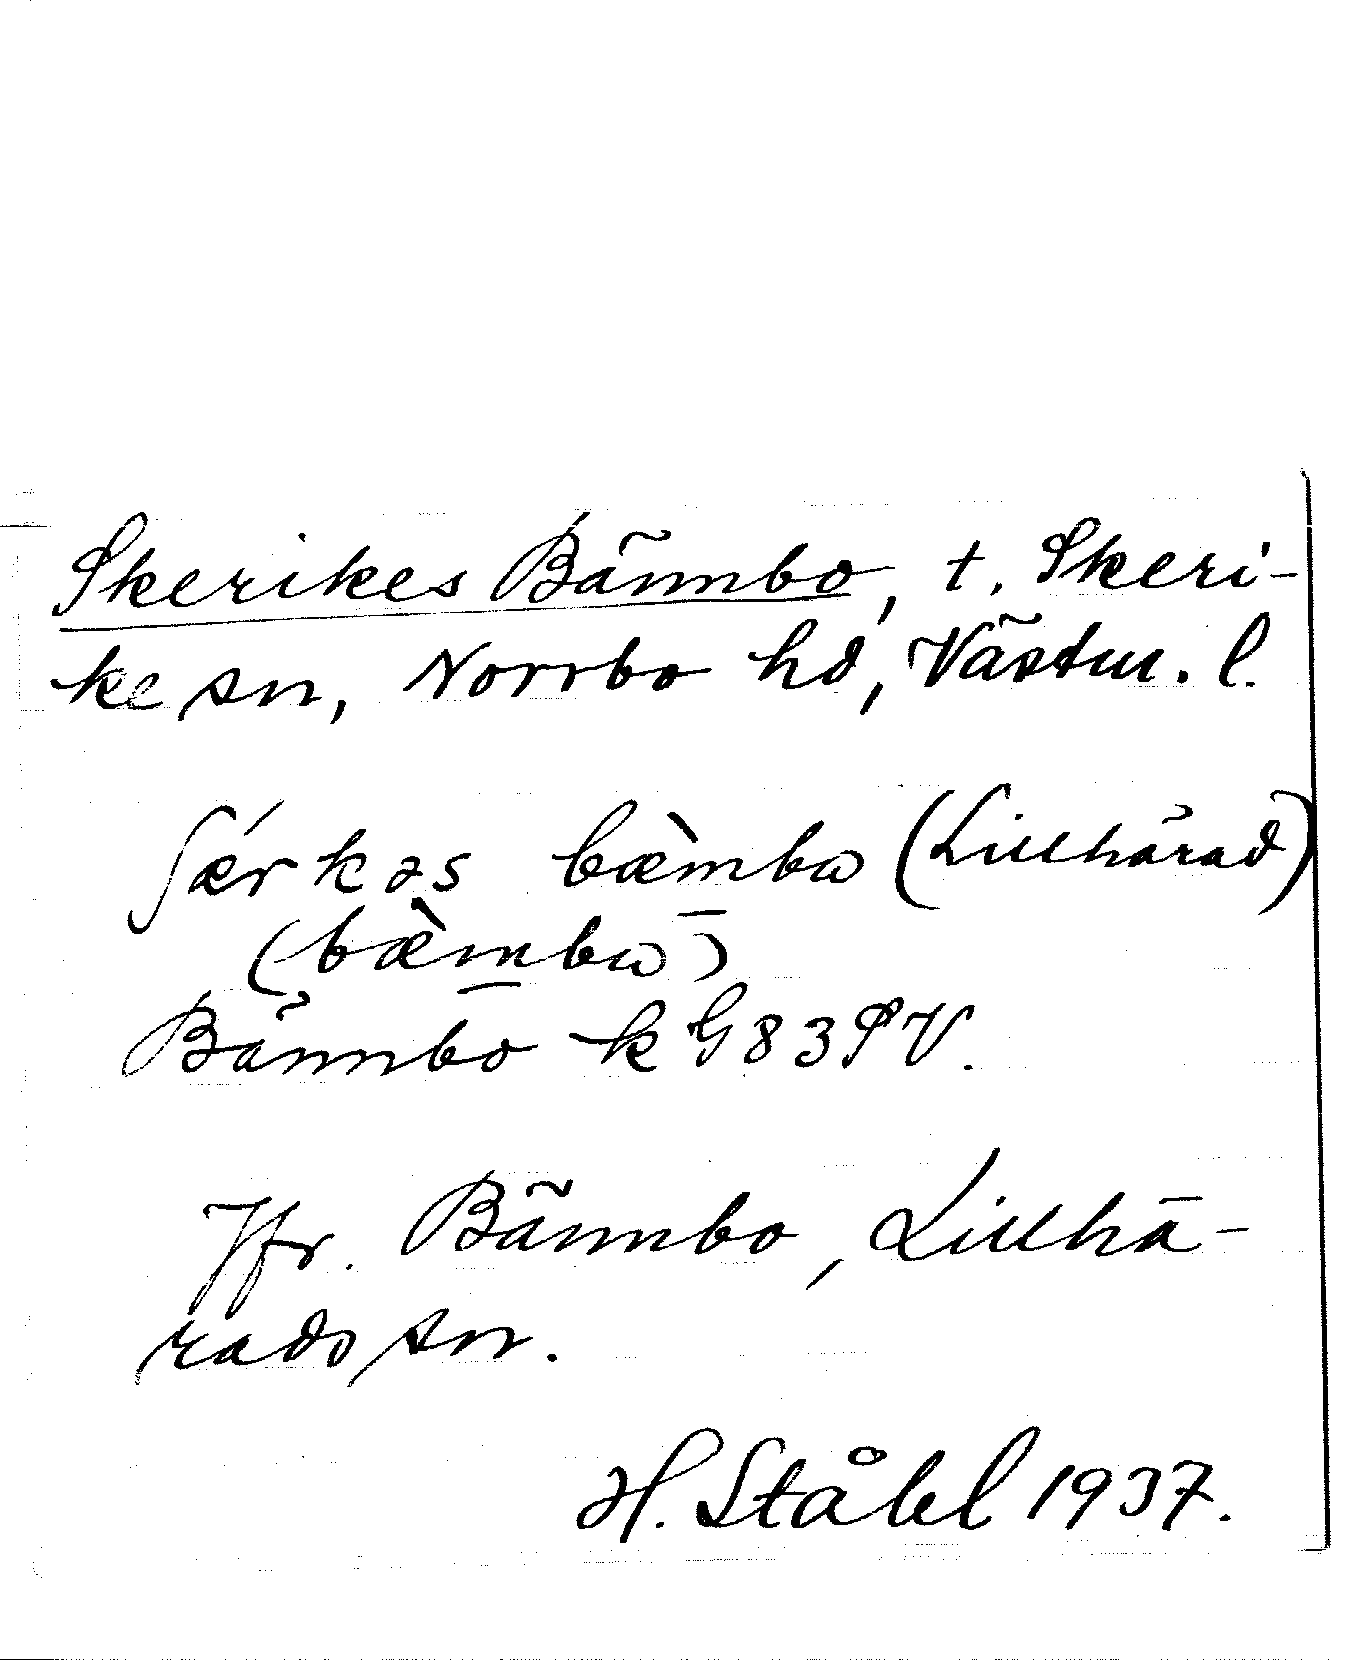 Skerikes Bännbo, t. Skeri-
ke sn, Norrbo hd, Västm. l.
ʃærkəs bæ̀mbω (Lillhärad)
(bæ̀mbω)
Bännbo k G 83 SV.
Jfr. Bännbo, Lillhä-
rads sn.
H. Ståhl 1937.